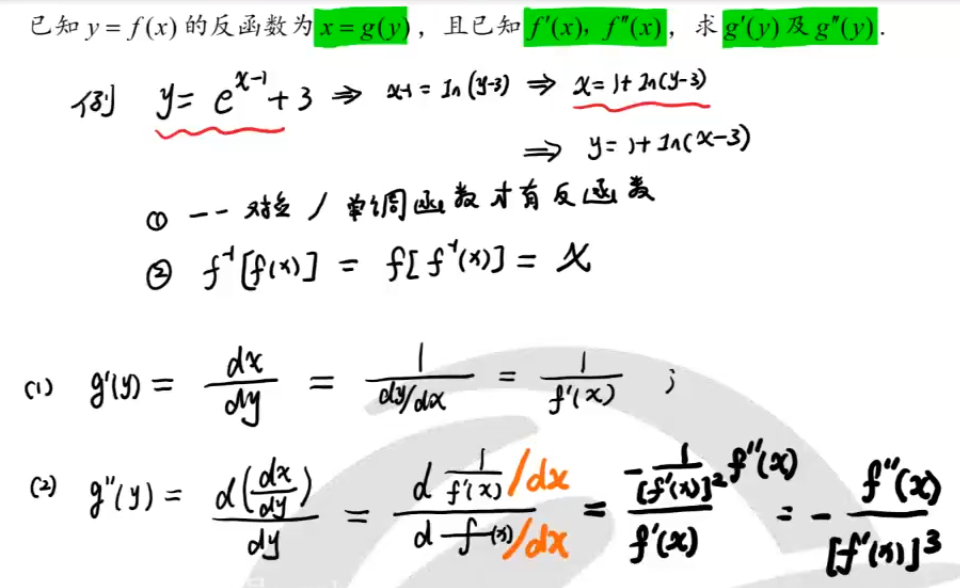 已知 y = f(x) 的反函数为 x = g(y)，且已知 f′(x), f″(x)，求 g′(y) 及 g″(y).
例 y = e^{x-1} + 3 ⇒ x-1 = ln(y-3) ⇒ x = 1 + ln(y-3)
⇒ y = 1 + ln(x-3)
① 一一对应 / 单调函数才有反函数
② f^{-1}[f(x)] = f[f^{-1}(x)] = x
(1) g'(y) = dx/dy = 1/(dy/dx) = 1/f'(x) ;
(2) g''(y) = d(dx/dy)/dy = (d 1/f'(x) /dx)/(d f(x) /dx) = (-1/[f'(x)]^2 f''(x))/f'(x) = - f''(x)/[f'(x)]^3